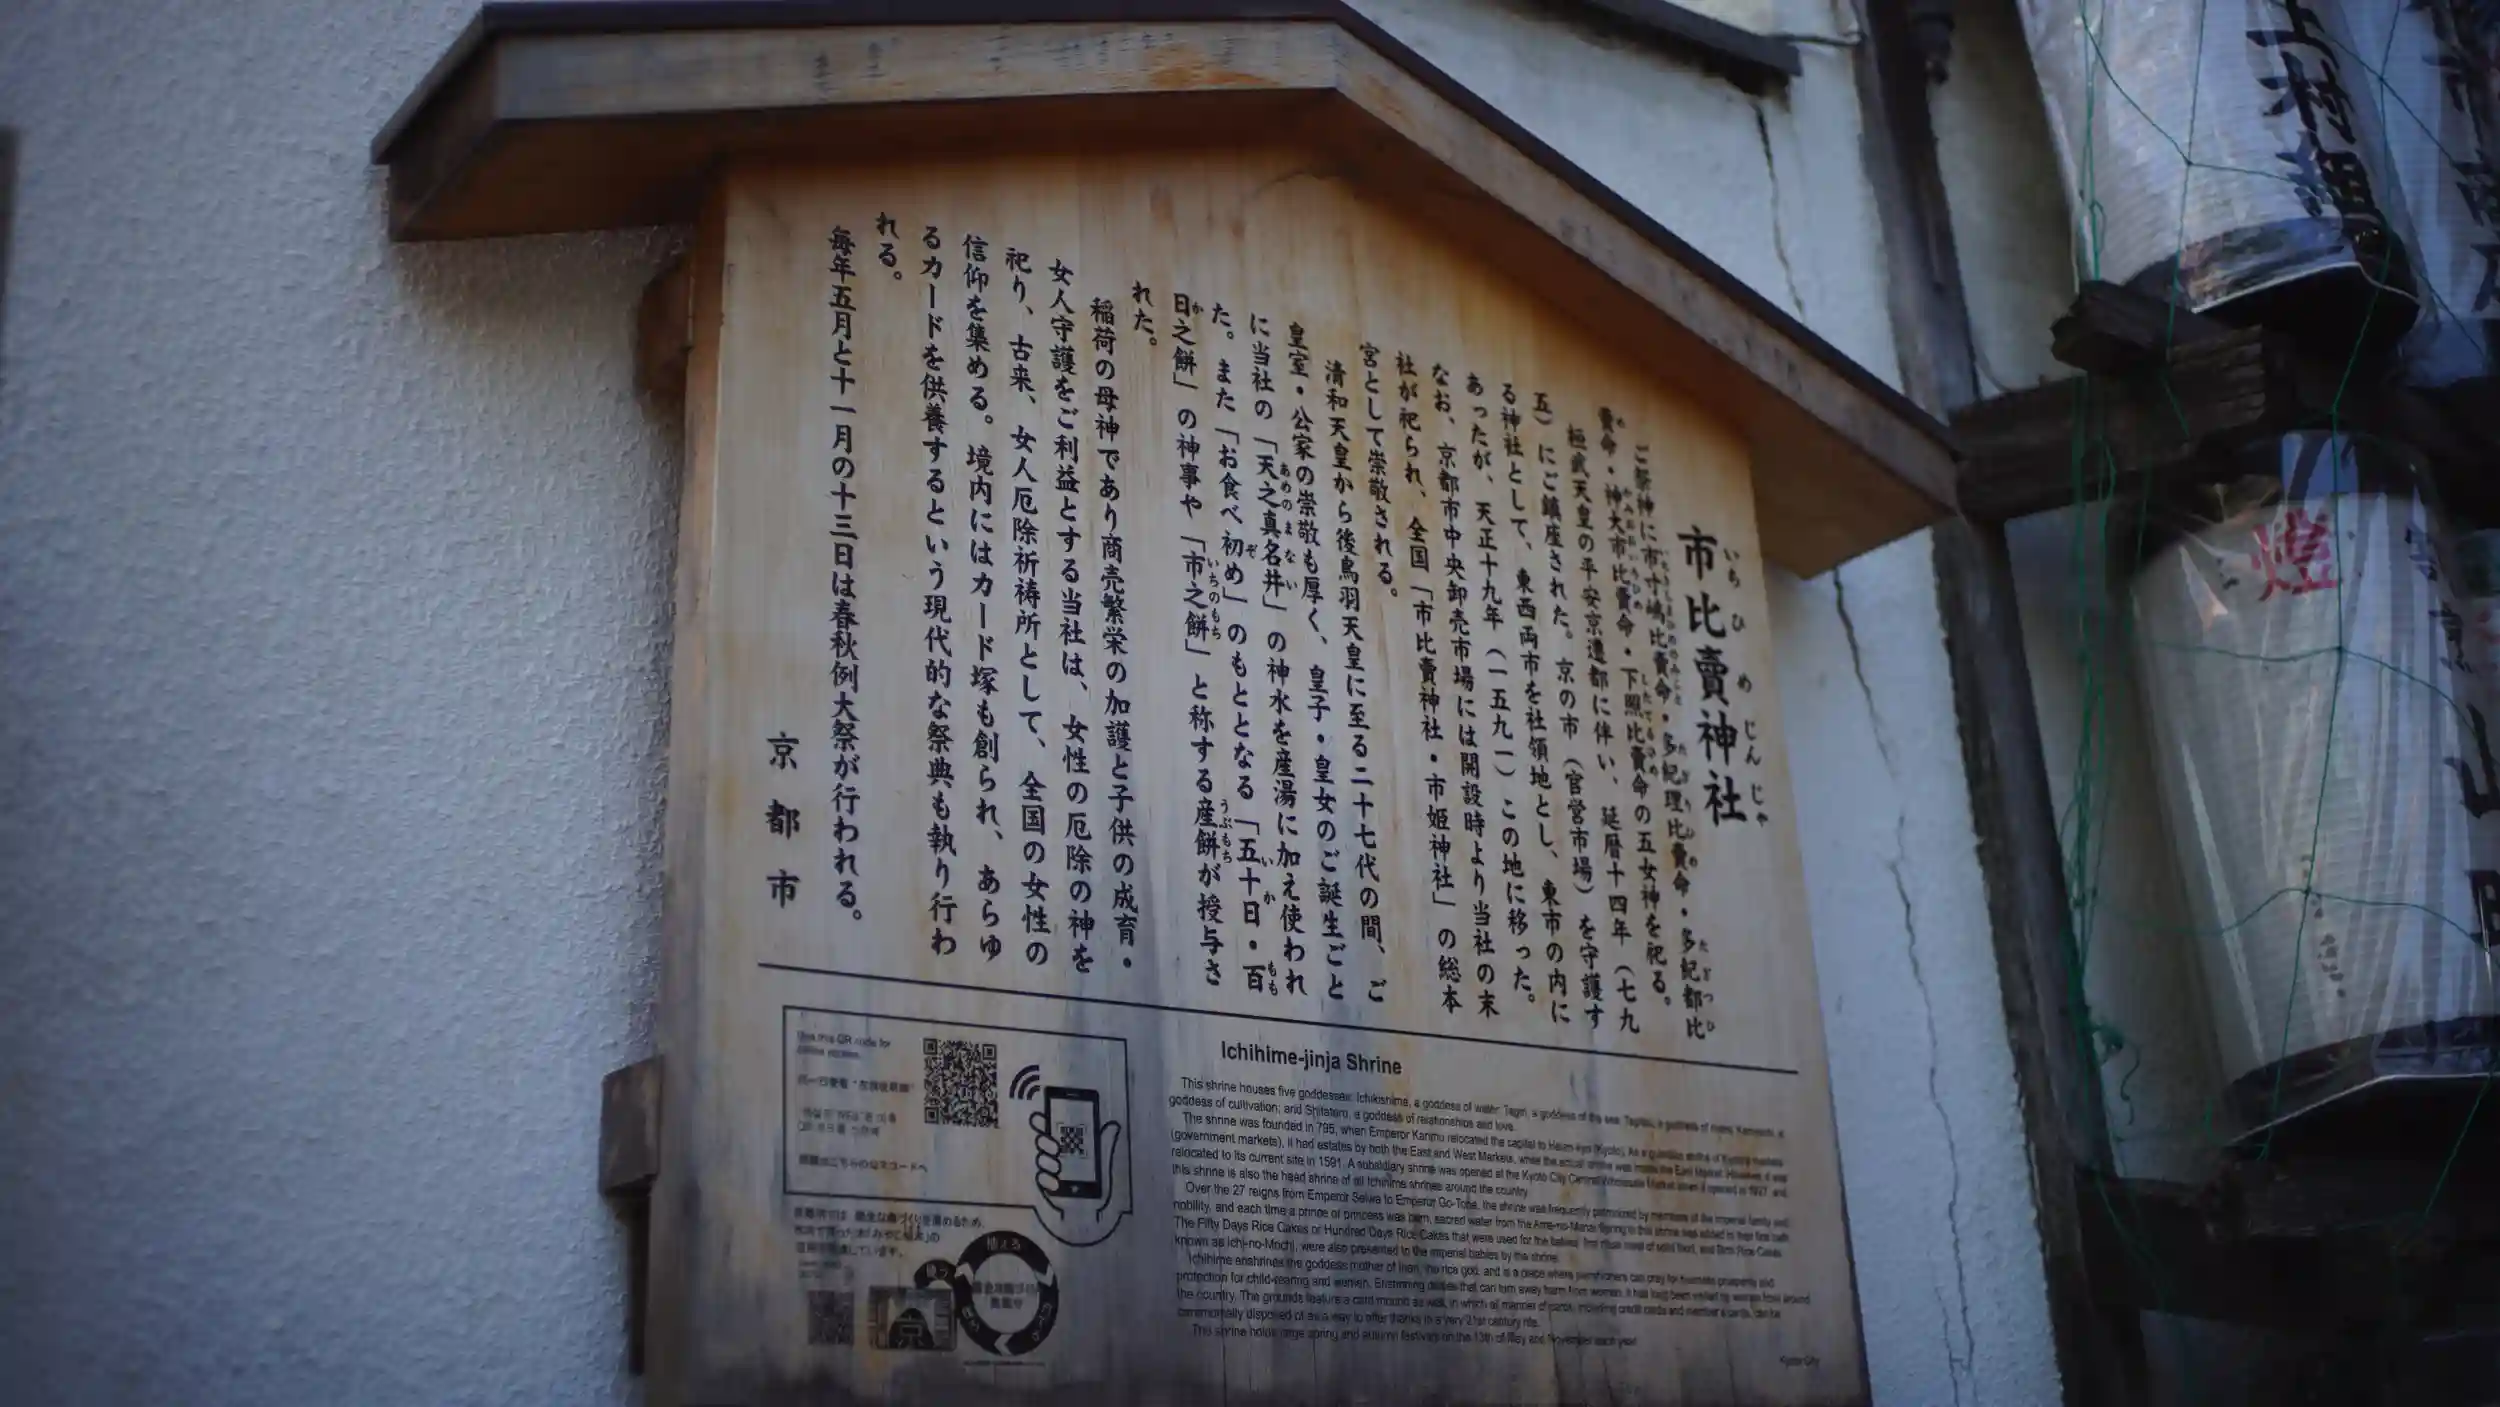 市比賣神社
いちひめじんじゃ
ご祭神に市寸嶋比賣命・多紀理比賣命・多紀都比
賣命・神大市比賣命・下照比賣命の五女神を祀る。
桓武天皇の平安京遷都に伴い、延暦十四年（七九
五）にご鎮座された。京の市（官営市場）を守護す
る神社として、東西両市を社領地とし、東市の内に
あったが、天正十九年（一五九一）この地に移った。
なお、京都市中央卸売市場には開設時より当社の末
社が祀られ、全国「市比賣神社・市姫神社」の総本
宮として崇敬される。
清和天皇から後鳥羽天皇に至る二十七代の間、ご
皇室・公家の崇敬も厚く、皇子・皇女のご誕生ごと
に当社の「天之真名井」の神水を産湯に加え使われ
た。また「お食べ初め」のもととなる「五十日・百
日之餅」の神事や「市之餅」と称する産餅が授与さ
れた。
稲荷の母神であり商売繁栄の加護と子供の成育・
女人守護をご利益とする当社は、女性の厄除の神を
祀り、古来、女人厄除祈祷所として、全国の女性の
信仰を集める。境内にはカード塚も創られ、あらゆ
るカードを供養するという現代的な祭典も執り行わ
れる。
毎年五月と十一月の十三日は春秋例大祭が行われる。
京都市
Ichihime-jinja Shrine
This shrine houses five goddesses: Ichikishima, a goddess of water; Tagiri, a goddess of the sea;
goddess of cultivation; and Shitateru, a goddess of relationships and love.
The shrine was founded in 795, when Emperor Kanmu relocated the capital to Heian-kyo (Kyoto). As a guardian shrine of Kyoto's markets
(government markets), it had estates by both the East and West Markets, while the actual shrine was inside the East Market. However, it was
relocated to its current site in 1591. A subsidiary shrine was opened at the Kyoto City Central Wholesale Market when it opened in 1927, and
this shrine is also the head shrine of all Ichihime shrines around the country.
Over the 27 reigns from Emperor Seiwa to Emperor Go-Toba, the shrine was frequently patronized by members of the imperial family and
nobility, and each time a prince or princess was born, sacred water from the Ame-no-Manai Spring in this shrine was added to their first bath.
The Fifty Days Rice Cakes or Hundred Days Rice Cakes that were used for the babies' first ritual meal of solid food, and Birth Rice Cakes
known as Ichi-no-Mochi, were also presented to the imperial babies by this shrine.
Ichihime enshrines the goddess mother of Inari, the rice god, and is a place where parishioners can pray for business prosperity and
protection for child-rearing and women. Enshrining deities that can turn away harm from women, it has long been visited by women from around
the country. The grounds feature a card mound as well, in which all manner of cards, including credit cards and member's cards, can be
ceremonially disposed of as a way to offer thanks in a very 21st century rite.
This shrine holds large spring and autumn festivals on the 13th of May and November each year.
Kyoto City
植える
使う
京
上村
燈